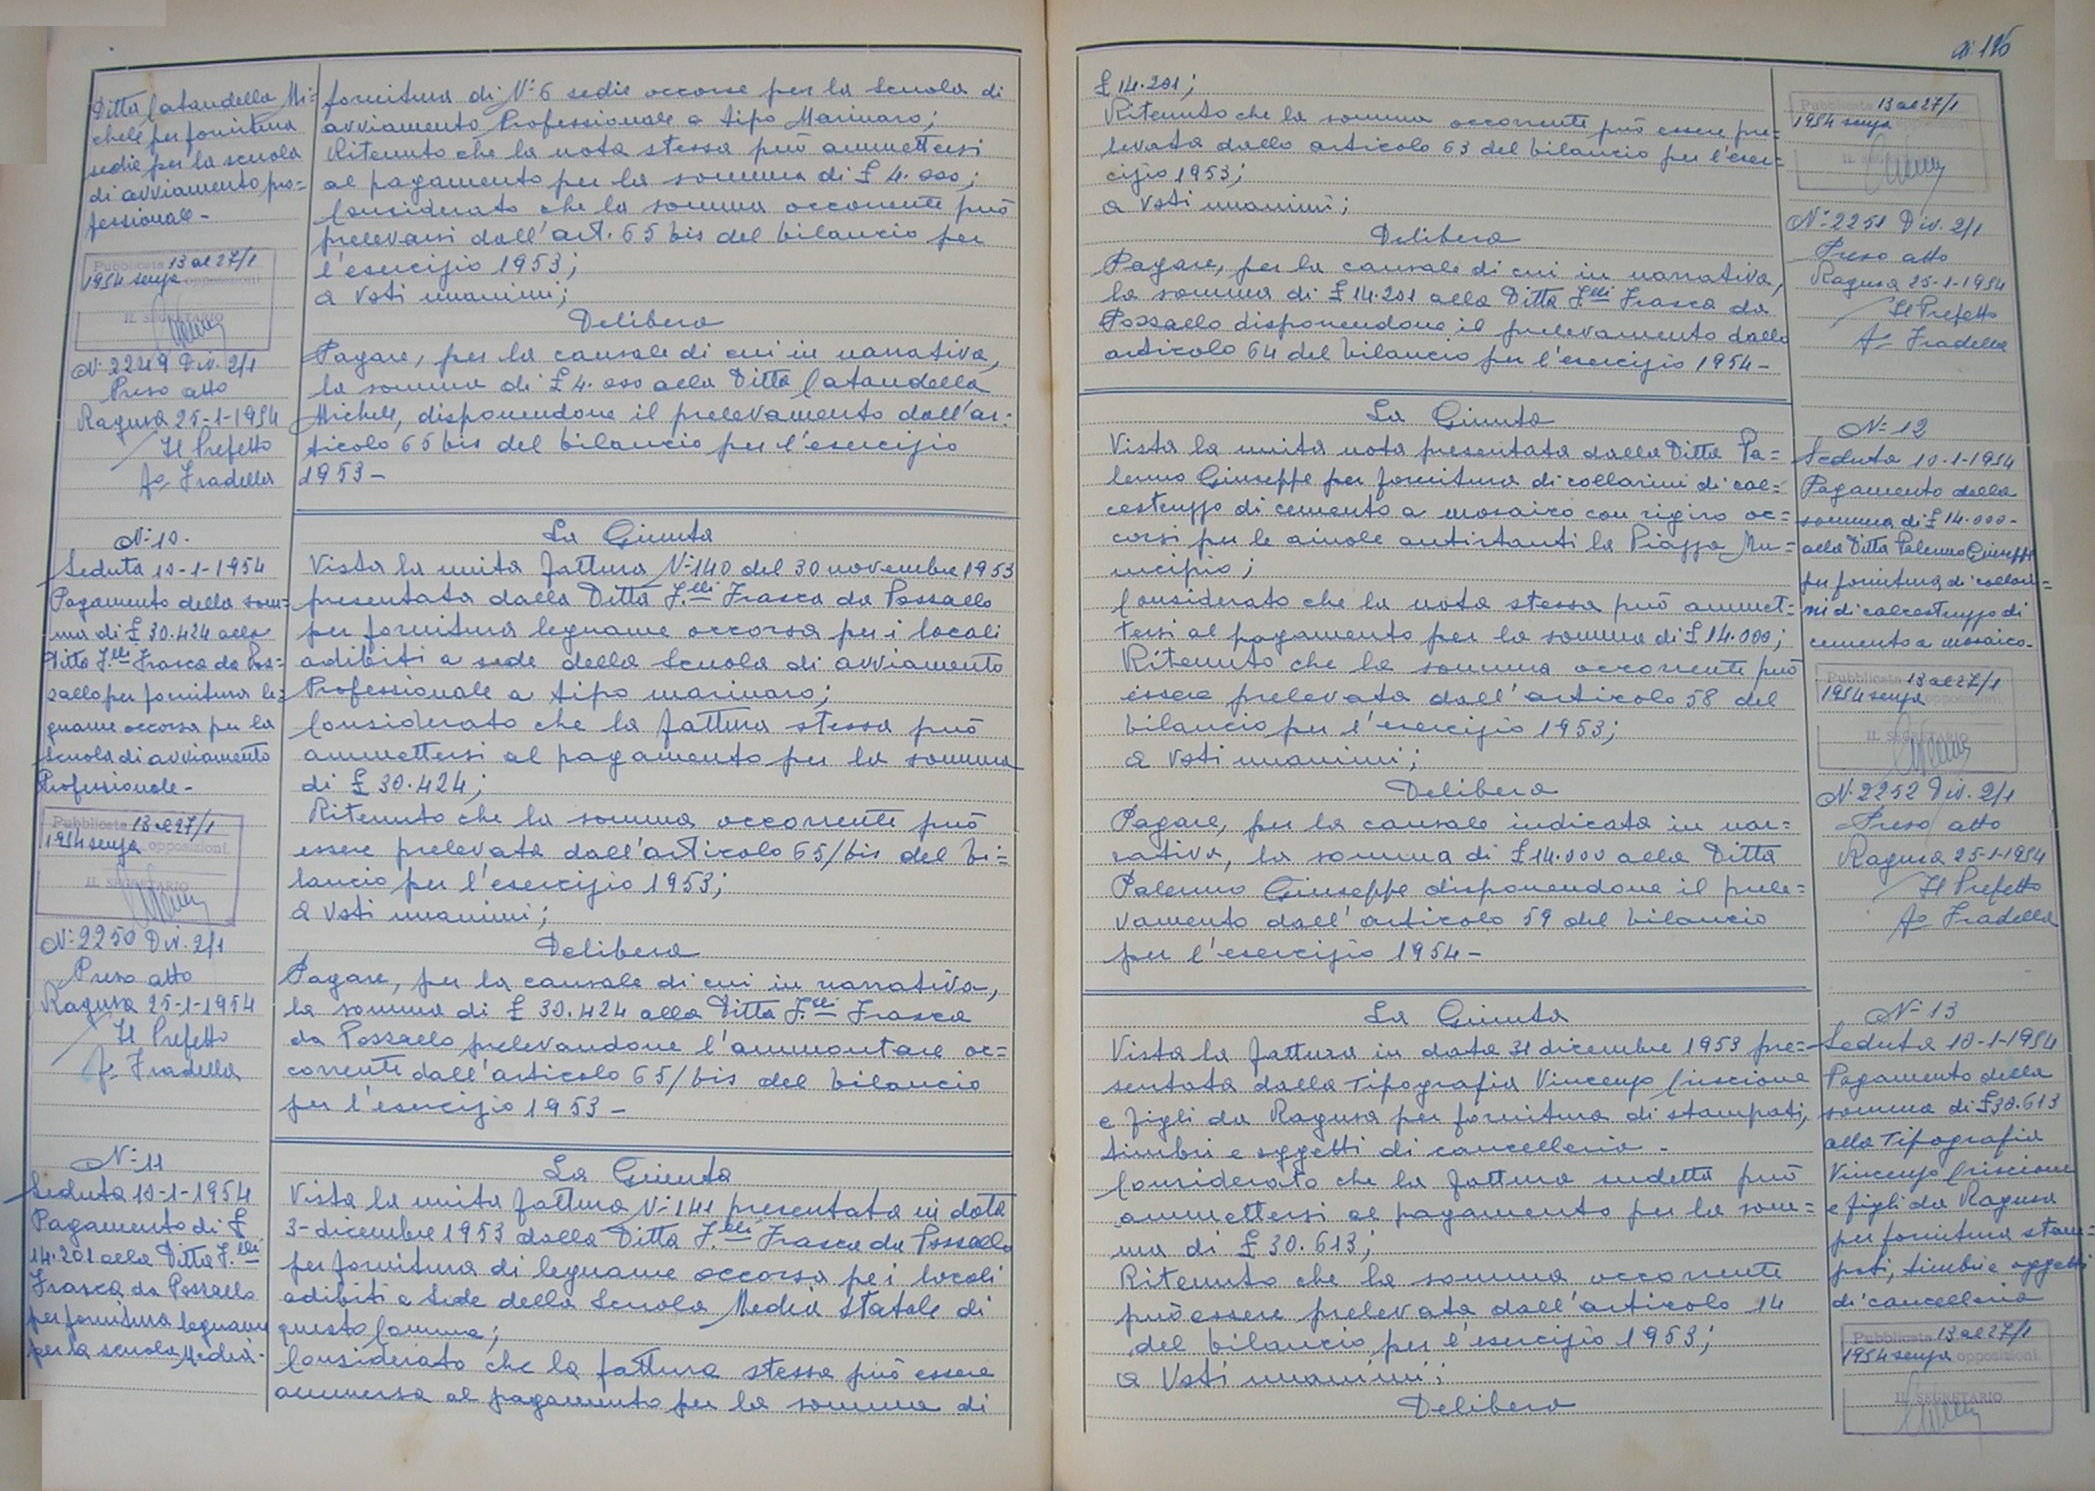 Ditta Cataudella Mi=
chele per fornitura
sedie per la scuola
di avviamento pro=
fessionale-
Pubblicata 13 al 27/1
1954 senza opposizioni
IL SEGRETARIO
N. 2249 Div. 2/1
Preso atto
Ragusa 25-1-1954
Il Prefetto
Fo Fradella
fornitura di N. 6 sedie occorse per la Scuola di
avviamento Professionale a tipo Marinaro;
Ritenuto che la nota stessa può ammettersi
al pagamento per la somma di £ 4.000;
Considerato che la somma occorrente può
prelevarsi dall'art. 65 bis del bilancio per
l'esercizio 1953;
a voti unanimi;
Delibera
Pagare, per la causale di cui in narrativa,
la somma di £ 4.000 alla Ditta Cataudella
Michele, disponendone il prelevamento dall'ar=
ticolo 65 bis del bilancio per l'esercizio
1953-
N. 10.
Seduta 10-1-1954
Pagamento della som=
ma di £ 30.424 alla
Ditta F.lli Frasca da Poz=
zallo per fornitura le=
gname occorsa per la
scuola di avviamento
Professionale-
Pubblicata 13 al 27/1
1954 senza opposizioni.
IL SEGRETARIO
N. 2250 Div. 2/1
Preso atto
Ragusa 25-1-1954
Il Prefetto
Fo Fradella
La Giunta
Vista la unita fattura N. 140 del 30 novembre 1953
presentata dalla Ditta F.lli Frasca da Pozzallo
per fornitura legname occorsa per i locali
adibiti a sede della Scuola di avviamento
Professionale a tipo marinaro;
Considerato che la fattura stessa può
ammettersi al pagamento per la somma
di £ 30.424;
Ritenuto che la somma occorrente può
essere prelevata dall'articolo 65/bis del bi=
lancio per l'esercizio 1953;
a voti unanimi;
Delibera
Pagare, per la causale di cui in narrativa,
la somma di £ 30.424 alla Ditta F.lli Frasca
da Pozzallo prelevandone l'ammontare oc=
corrente dall'articolo 65/bis del bilancio
per l'esercizio 1953-
N. 11
Seduta 10-1-1954
Pagamento di £
14.201 alla Ditta F.lli
Frasca da Pozzallo
per fornitura legname
per la scuola Media-
La Giunta
Vista la unita fattura N. 141 presentata in data
3-dicembre 1953 dalla Ditta F.lli Frasca da Pozzallo
per fornitura di legname occorsa pe i locali
adibiti a sede della Scuola Media Statale di
questo Comune;
Considerato che la fattura stessa può essere
ammersa al pagamento per la somma di
di 196
£ 14.201;
Ritenuto che la somma occorrente può essere pre=
levata dallo articolo 63 del bilancio per l'eser=
cizio 1953;
a voti unanimi;
Delibera
Pagare, per la causale di cui in narrativa,
la somma di £ 14.201 alla Ditta F.lli Frasca da
Pozzallo disponendone il prelevamento dallo
articolo 64 del bilancio per l'esercizio 1954-
Pubblicata 13 al 27/1
1954 senza
IL SEGRETARIO
N. 2251 Div. 2/1
Preso atto
Ragusa 25-1-1954
Il Prefetto
Fo Fradella
La Giunta
Vista la unita nota presentata dalla Ditta Pa=
lermo Giuseppe per fornitura di collarini di cal=
cestruzzo di cemento a mosaico con rigiro oc=
corsi per le aiuole antistanti la Piazza Mu=
nicipio;
Considerato che la nota stessa può ammet=
tersi al pagamento per la somma di £ 14.000;
Ritenuto che la somma occorrente può
essere prelevata dall'articolo 58 del
bilancio per l'esercizio 1953;
a voti unanimi;
Delibera
Pagare, per la causale indicata in nar=
rativa, la somma di £ 14.000 alla Ditta
Palermo Giuseppe disponendone il prele=
vamento dall'articolo 59 del bilancio
per l'esercizio 1954-
N. 12
Seduta 10-1-1954
Pagamento della
somma di £ 14.000-
alla Ditta Palermo Giuseppe
per fornitura di collari=
ni di calcestruzzo di
cemento a mosaico-
Pubblicata 13 al 27/1
1954 senza opposizioni.
IL SEGRETARIO
N. 2252 Div. 2/1
Preso atto
Ragusa 25-1-1954
Il Prefetto
Fo Fradella
La Giunta
Vista la fattura in data 31 dicembre 1953 pre=
sentata dalla Tipografia Vincenzo Criscione
e figli da Ragusa per fornitura di stampati,
timbri e oggetti di cancelleria-
Considerato che la fattura sudetta può
ammettersi al pagamento per la som=
ma di £ 30.613;
Ritenuto che la somma occorrente
può essere prelevata dall'articolo 14
del bilancio per l'esercizio 1953;
a Voti unanimi;
Delibera
N. 13
Seduta 10-1-1954
Pagamento della
somma di £ 30.613
alla Tipografia
Vincenzo Criscione
e figli da Ragusa
per fornitura stam=
pati, timbri e oggetti
di cancelleria
Pubblicata 13 al 27/1
1954 senza opposizioni.
IL SEGRETARIO